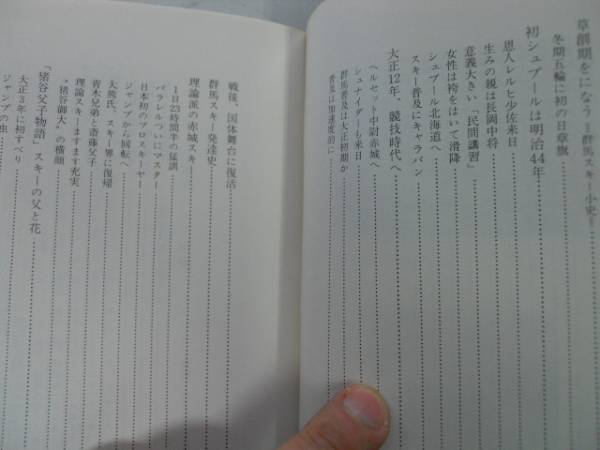 草創期をになう―群馬スキー小史―
冬期五輪に初の日章旗
初シュプールは明治44年
恩人レルヒ少佐来日
生みの親は長岡中将
意義大きい「民間講習」
女性は袴をはいて滑降
シュプール北海道へ
スキー普及にキャラバン
大正12年、競技時代へ
ヘルセット中尉赤城へ
シュナイダーも来日
群馬普及は大正初期か
普及は加速度的に
戦後、国体舞台に復活
群馬スキー発達史
理論派の赤城スキー
1日23時間半の猛訓
パラレルついにマスター
日本初のプロスキーヤー
ジャンプから回転へ
大熊氏、スキー界に復帰
青木兄弟と斎藤父子
理論スキーますます充実
“猪谷御大”の横顔
「猪谷父子物語」スキーの父と花
大正3年に初すべり
ジャンプの虫